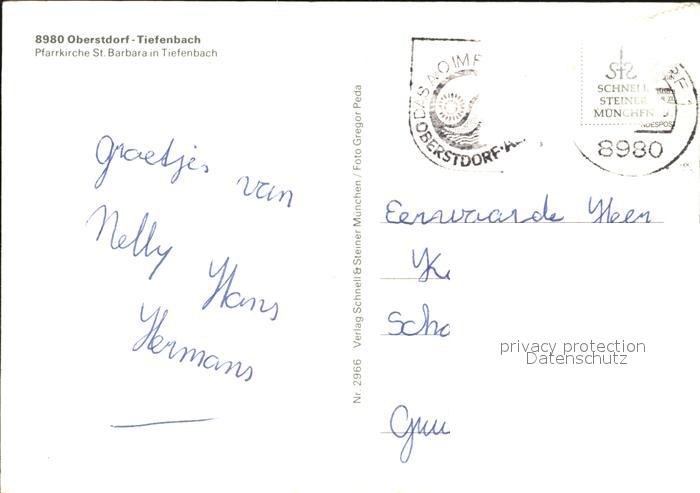 8980 Oberstdorf-Tiefenbach
Pfarrkirche St. Barbara in Tiefenbach
Groetjes van
Nelly Hans
Hermans
Nr. 2966 Verlag Schnell & Steiner München / Foto Gregor Peda
OBERSTDORF
SCHNELL
STEINER
MÜNCHEN
8980
Eerwaarde Heer
Scho
privacy protection
Datenschutz